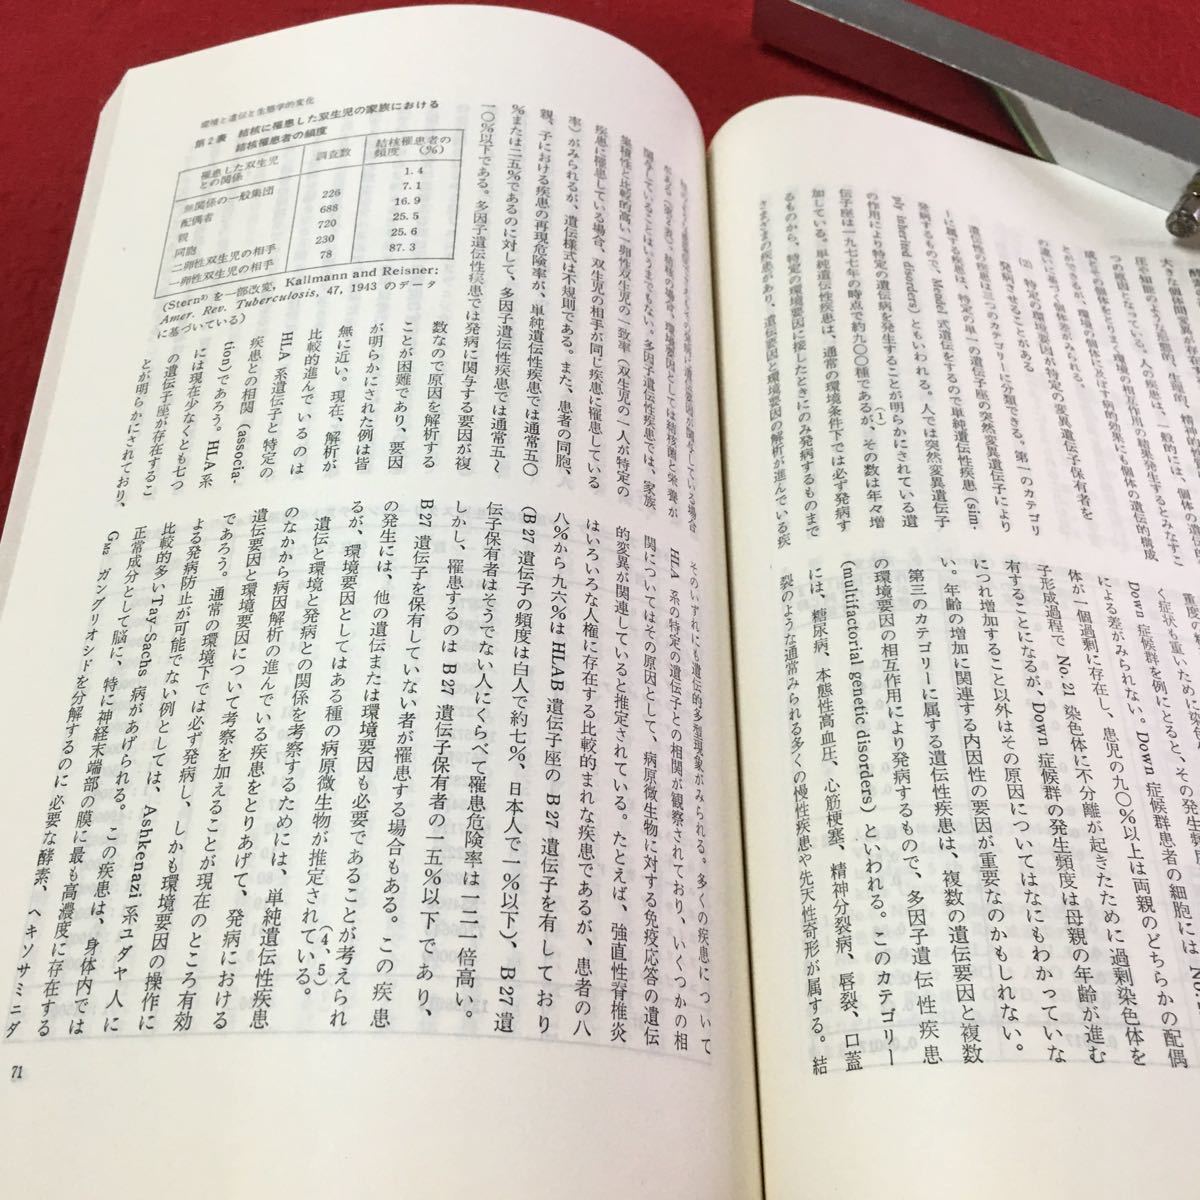 大きな個体間変異が存在
圧や知能のような生理的、精神的
つの原因となっている。人の疾患は、一般的には、個体の遺伝的構成
成とその個体をとりまく環境の相互作用の結果発生するとみなすこ
とができるが、環境の個体に及ぼす量的効果にも個体の遺伝的構成
の違いに基づく個体差がみられる。
(2) 特定の環境要因が特定の変異遺伝子保有者を
発病させることがある
遺伝性の疾患は三つのカテゴリーに分類できる。第一のカテゴリ
ーに属する疾患は、特定の単一の遺伝子座の突然変異遺伝子により
発病するもので、Mendel 式遺伝をするので単純遺伝性疾患(sim-
ply inherited disorders)ともいわれる。人では突然変異遺伝子
の作用により特定の遺伝病を発生することが明らかにされている遺
伝子座は一九七七年の時点で約九〇〇種であるが、その数は年々増(1)
加している。単純遺伝性疾患は、通常の環境条件下では必ず発病す
るものから、特定の環境要因に接したときにのみ発病するものまで
さまざまの疾患があり、遺伝要因と環境要因の解析が進んでいる疾
重度の
く症状も重いために、その発生頻度
Down 症候群を例にとると、
による差がみられない。Down 症候群患者の細胞には、No.
体が一個過剰に存在し、患児の九〇%以上は両親のどちらかの配偶
子形成過程で No.21 染色体に不分離が起きたために過剰染色体を
有することになるが、Down 症候群の発生頻度は母親の年齢が進む
につれ増加すること以外はその原因についてはなにもわかっていな
い。年齢の増加に関連する内因性の要因が重要なのかもしれない。
第三のカテゴリーに属する遺伝性疾患は、複数の遺伝要因と複数
の環境要因の相互作用により発病するもので、多因子遺伝性疾患
(multifactorial genetic disorders)といわれる。このカテゴリー
には、糖尿病、本態性高血圧、心筋梗塞、精神分裂病、唇裂、口蓋
裂のような通常みられる多くの慢性疾患や先天性奇形が属する。結
環境と遺伝と生態学的変化
第2表 結核に罹患した双生児の家族における
結核罹患者の頻度
罹患した双生児との関係 調査数 結核罹患者の頻度 (%)
無関係の一般集団 1.4
配偶者 226 7.1
親 688 16.9
同胞 720 25.5
二卵性双生児の相手 230 25.6
一卵性双生児の相手 78 87.3
(Stern³⁾ を一部改変, Kallmann and Reisner:
Amer. Rev. Tuberculosis, 47, 1943 のデータ
に基づいている)
関与していることはいうまでもない。多因子遺伝性疾患では、家族
集積性と比較的高い一卵性双生児の一致率(双生児の一人が特定の
疾患に罹患している場合、双生児の相手が同じ疾患に罹患している
率)がみられるが、遺伝様式は不規則である。また、患者の同胞、
親、子における疾患の再現危険率が、単純遺伝性疾患では通常五〇
%または二五%であるのに対して、多因子遺伝性疾患では通常五〜
一〇%以下である。多因子遺伝性疾患では発病に関与する要因が複
数なので原因を解析する
ことが困難であり、要因
が明らかにされた例は皆
無に近い。現在、解析が
比較的進んでいるのは
HLA 系遺伝子と特定の
疾患との相関(associa-
tion)であろう。HLA 系
には現在少なくとも七つ
の遺伝子座が存在するこ
とが明らかにされており、
そのいずれにも遺伝的多型現象がみられる。多くの疾患について
HLA 系の特定の遺伝子との相関が観察されており、いくつかの相
関についてはその原因として、病原微生物に対する免疫応答の遺伝
的変異が関連していると推定されている。たとえば、強直性脊椎炎
はいろいろな人種に存在する比較的まれな疾患であるが、患者の八
八%から九六%は HLAB 遺伝子座の B 27 遺伝子を有しており
(B 27 遺伝子の頻度は白人で約七%、日本人で一%以下)、B 27 遺
伝子保有者はそうでない人にくらべて罹患危険率は一二一倍高い。
しかし、罹患するのは B 27 遺伝子保有者の一五%以下であり、
B 27 遺伝子を保有していない者が罹患する場合もある。この疾患
の発生には、他の遺伝または環境要因も必要であることが考えられ
るが、環境要因としてはある種の病原微生物が推定されている。(4, 5)
遺伝と環境と発病との関係を考察するためには、単純遺伝性疾患
のなかから病因解析の進んでいる疾患をとりあげて、発病における
遺伝要因と環境要因について考察を加えることが現在のところ有効
であろう。通常の環境下では必ず発病し、しかも環境要因の操作に
よる発病防止が可能でない例としては、Ashkenazi 系ユダヤ人に
比較的多い Tay-Sachs 病があげられる。この疾患は、身体内では
正常成分として脳に、特に神経末端部の膜に最も高濃度に存在する
GM2 ガングリオシドを分解するのに必要な酵素、ヘキソサミニダ
71